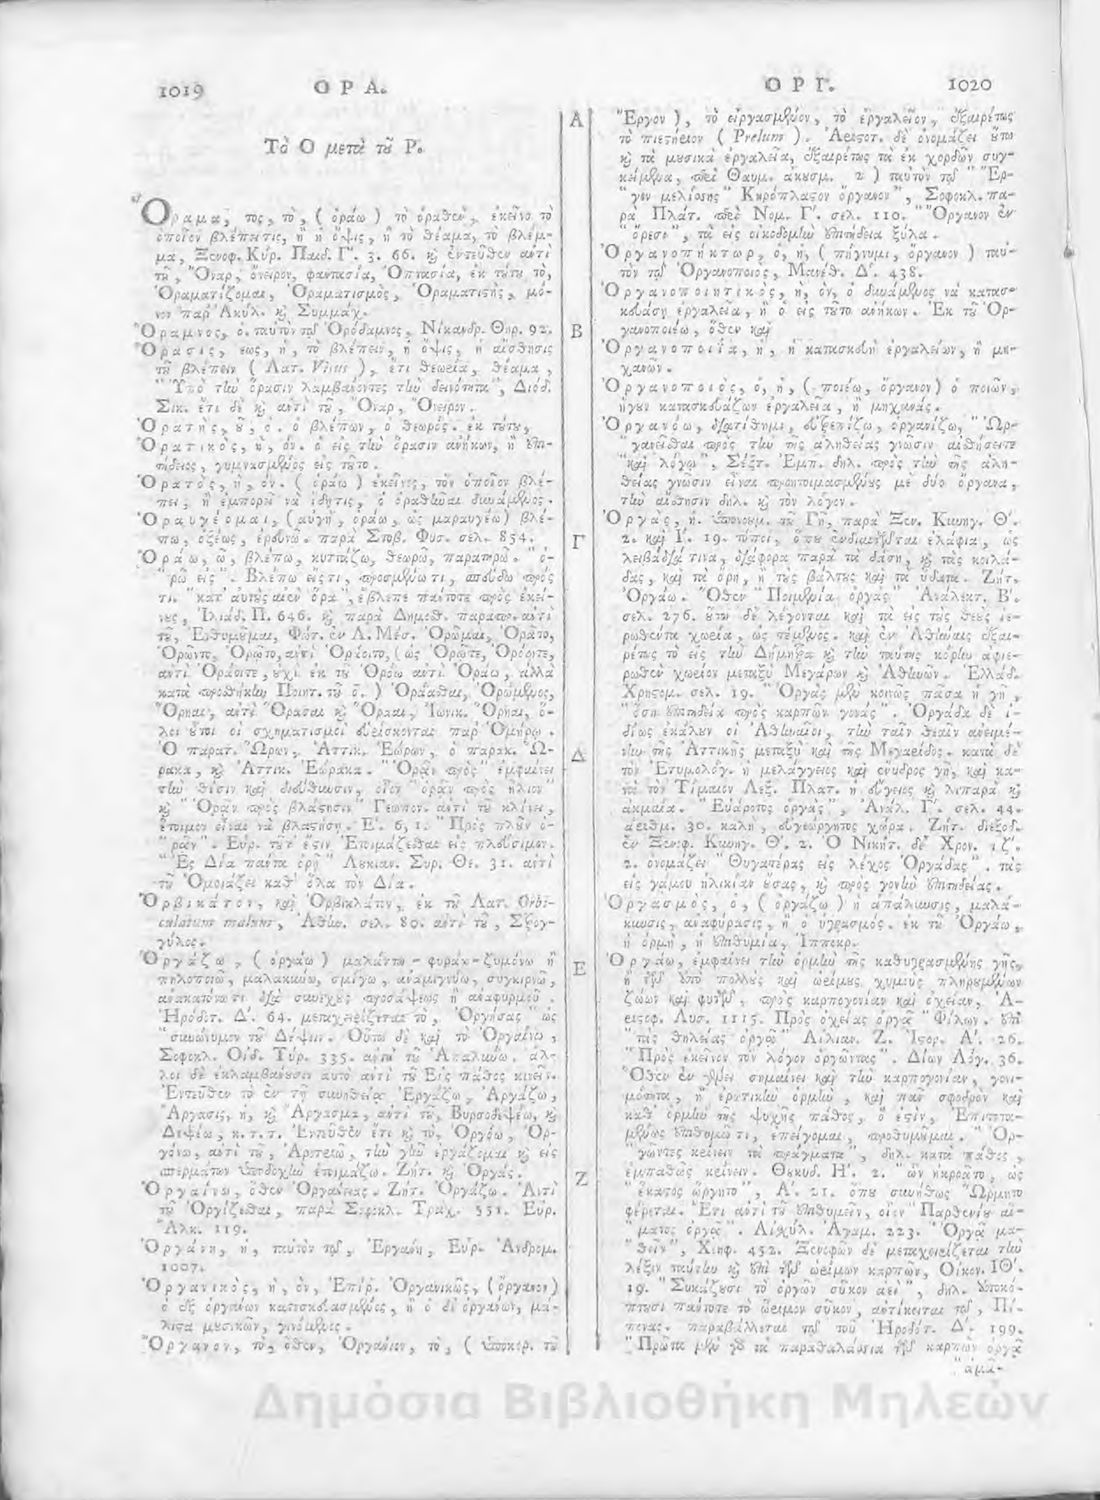 1019 ΟΡΑ.
Τὸ Ο μετὰ τοῦ Ρ.
Ὅραμα, τος, τὸ, (ὁράω) τὸ ὁραθὲν, ἐκεῖνο τὸ
ὁποῖον βλέπει τις, ἢ ἡ ὄψις, ἢ τὸ θέαμα, τὸ βλέμ-
μα, Ξενοφ. Κύρ. Παιδ. Γ'. 3. 66. καὶ ἐντεῦθεν ἀντὶ
τοῦ, Ὄναρ, ὄνειρον, φαντασία, Ὀπτασία, ἐκ τούτου τὸ,
Ὁραματίζομαι, Ὁραματισμὸς, Ὁραματιστὴς, μό-
νον παρ' Ἀκύλ. καὶ Συμμάχ.
Ὅραμνος, ὁ. ταὐτὸν τῷ Ὀρόδαμνος, Νίκανδρ. Θηρ. 92.
Ὅρασις, εως, ἡ, τὸ βλέπειν, ἡ ὄψις, ἡ αἴσθησις
τοῦ βλέπειν (Λατ. Visus), ἔτι θεωρία, θέαμα,
"Ὑπὸ τὴν ὅρασιν λαμβάνοντες τὴν δεινότητα", Διόδ.
Σικ. ἔτι δὲ καὶ ἀντὶ τοῦ, Ὄναρ, Ὄνειρον.
Ὁρατὴς, οῦ, ὁ. ὁ βλέπων, ὁ θεωρός. ἐκ τούτου,
Ὁρατικὸς, ἡ, όν. ὁ εἰς τὴν ὅρασιν ἀνήκων, ἢ ἐπι-
τήδειος, γυμνασμένος εἰς τοῦτο.
Ὁρατὸς, ἡ, όν. (ὁράω) ἐκεῖνος, τὸν ὁποῖον βλέ-
πει, ἢ ἐμπορεῖ νὰ ἰδῇ τις, ὁ ὁραθῆναι δυνάμενος.
Ὁραυγέομαι, (αὐγὴ, ὁράω, ὡς μαραυγέω) βλέ-
πω, ὀξέως, ἐρευνῶ. παρὰ Στοβ. Φυσ. σελ. 854.
Ὁράω, ῶ, βλέπω, κυττάζω, θεωρῶ, παρατηρῶ. "ὁ-
"ρῶ εἰς". Βλέπω εἴς τι, προσμένω τι, σπεύδω πρὸς
τι. "κατ' αὐτοὺς αἰὲν ὅρα", ἔβλεπε πάντοτε πρὸς ἐκεί-
νους, Ἰλιάδ. Π. 646. καὶ παρὰ Δημοσθ. ἀντὶ
τοῦ, Ἐνθυμοῦμαι, Φώτ. ἐν Λ. Μέσ. Ὁρῶμαι, Ὁρᾶτο,
Ὁρῶντο, Ὁρῷτο, ἀντὶ Ὁρέοιτο, (ὡς Ὁρῶτε, Ὁρόῳτε,
ἀντὶ Ὁράοιτε, οὐχὶ ἐκ τοῦ Ὁρόω ἀντὶ Ὁράω, ἀλλὰ
κατὰ προσθήκην Ποιητ. τοῦ ο.) Ὁράασθαι, Ὁρώμενος,
Ὅρηαι, ἀντὶ Ὅρασαι καὶ Ὅρααι, Ἰωνικ. Ὅρηαι, ὅ-
λοι οὗτοι οἱ σχηματισμοὶ εὑρίσκονται παρ' Ὁμήρῳ.
Ὁ παρατ. Ὥρων, Ἀττικ. Ἑώρων, ὁ παρακ. Ὥ-
ρακα, καὶ Ἀττικ. Ἑώρακα. "Ὁρᾶν πρὸς" ἐμφαίνει
τὴν θέσιν καὶ διεύθυνσιν, οἷον "ὁρᾶν πρὸς ἥλιον"
καὶ "Ὁρᾶν πρὸς βλάστησιν" Γεωπον. ἀντὶ τοῦ κλίνει,
ἕτοιμον εἶναι νὰ βλαστήσῃ. Ε'. 6, 1. "Πρὸς πλοῦν ὁ-
"ρᾶν". Εὐρ. τουτ' ἔστιν Ἑτοιμάζεσθαι εἰς πλεύσιμον.
"Ἐς Δία πάντα ὁρῇ" Λουκιαν. Συρ. Θε. 31. ἀντὶ
τοῦ Ὁμοιάζει καθ' ὅλα τὸν Δία.
Ὀρβικάτον, καὶ Ὀρβικλάτον, ἐκ τοῦ Λατ. Orbi-
culatum malum, Ἀθήν. σελ. 80. ἀντὶ τοῦ, Στρογ-
γύλος.
Ὀργάζω, (ὀργάω) μαλάττω - φυράω - ζυμόνω ἢ
πηλοποιῶ, μαλακύνω, σμίγω, ἀναμιγνύω, συγκιρνῶ,
ἀνακατόνω τι διὰ συνεχοῦς προσάψεως ἢ ἀναφυρμοῦ.
Ἡρόδοτ. Δ'. 64. μεταχειρίζεται τὸ, Ὀργήσας "ὡς
"συνώνυμον τοῦ Δέψειν. Οὕτω δὲ καὶ τὸ Ὀργαίνω,
Σοφοκλ. Οἰδ. Τύρ. 335. ἀντὶ τοῦ Ἁπαλύνω. ἄλ-
λοι δὲ ἐκλαμβάνουσιν αὐτὸ ἀντὶ τοῦ Εἰς πάθος κινεῖν.
Ἐντεῦθεν τὸ ἐν τῇ συνηθείᾳ Ἐργάζω, Ἀργάζω,
Ἄργασις, ἡ, καὶ Ἄργασμα, ἀντὶ τοῦ, Βυρσοδεψέω, καὶ
Δεψέω, κ.τ.τ. Ἐντεῦθεν ἔτι καὶ τὸ, Ὀργόω, Ὀρ-
γόνω, ἀντὶ τοῦ, Ἀροτριῶ, τὴν γῆν ἐργάζομαι καὶ εἰς
σπερμάτων ὑποδοχὴν ἑτοιμάζω. Ζήτ. καὶ Ὀργάς.
Ὀργαίνω, ὅθεν Ὀργάνειας. Ζήτ. Ὀργάζω. Ἀντὶ
τοῦ Ὀργίζεσθαι, παρὰ Σοφοκλ. Τραχ. 551. Εὐρ.
Ἄλκ. 119.
Ὀργάνη, ἡ, ταὐτὸν τῷ, Ἐργάνη, Εὐρ. Ἀνδρομ.
1007.
Ὀργανικὸς, ἡ, όν, Ἐπίρ. Ὀργανικῶς, (ὄργανον)
ὁ ἐξ ὀργάνων κατεσκευασμένος, ἢ ὁ δι' ὀργάνων, μά-
λιστα μουσικῶν, γινόμενος.
Ὄργανον, τὸ, ὅθεν, Ὀργάνιον, τὸ, (ὑποκορ. τοῦ
Α
Β
Γ
Δ
Ε
Ζ
ΟΡΓ. 1020
Ἔργον), τὸ εἰργασμένον, τὸ ἐργαλεῖον, ἐξαιρέτως
τὸ πιεστήριον (Prelum). Ἀριστοτ. δὲ ὀνομάζει οὕτω
καὶ τὰ μουσικὰ ἐργαλεῖα, ἐξαιρέτως τὰ ἐκ χορδῶν συγ-
κείμενα, περὶ Θαυμ. ἀκουσμ. 2) ταὐτὸν τῷ "Ἔρ-
"γον μελίσσης" Κηρόπλαστον ὄργανον", Σοφοκλ. πα-
ρὰ Πλάτ. περὶ Νομ. Γ'. σελ. 110. "Ὄργανον ἐν
"ὄρεσι", τὰ εἰς οἰκοδομὴν ἐπιτήδεια ξύλα.
Ὀργανοπήκτωρ, ὁ, ἡ, (πήγνυμι, ὄργανον) ταὐ-
τὸν τῷ Ὀργανοποιὸς, Μανέθ. Δ'. 438.
Ὀργανοποιητικὸς, ἡ, όν, ὁ δυνάμενος νὰ κατασ-
κευάσῃ ἐργαλεῖα, ἢ ὁ εἰς τοῦτο ἀνήκων. Ἐκ τοῦ Ὀρ-
γανοποιέω, ὅθεν καὶ
Ὀργανοποιΐα, ἡ, ἡ κατασκευὴ ἐργαλείων, ἢ μη-
χανῶν.
Ὀργανοποιὸς, ὁ, ἡ, (ποιέω, ὄργανον) ὁ ποιῶν,
ἤγουν κατασκευάζων ἐργαλεῖα, ἢ μηχανάς.
Ὀργανόω, διατίθημι, εὐτρεπίζω, ὀργανίζω, "Ὠρ-
"γανῶσθαι πρὸς τὴν τῆς ἀληθείας γνῶσιν αἰσθήσει τε
"καὶ λόγῳ", Σέξτ. Ἐμπ. δηλ. πρὸς τὴν τῆς ἀλη-
θείας γνῶσιν εἶναι προητοιμασμένους μὲ δύο ὄργανα,
τὴν αἴσθησιν δηλ. καὶ τὸν λόγον.
Ὀργὰς, ἡ. ὑπονοουμ. τοῦ Γῆ, παρὰ Ξεν. Κυνηγ. Θ'.
2. καὶ Ι'. 19. τόποι, ὅπου ἐνδιαιτῶνται ἐλάφια, ὡς
λειβάδια τινα, διάφορα παρὰ τὰ δάση, καὶ τὰς κοιλά-
δας, καὶ τὰ ὄρη, ἢ τοὺς βάλτους καὶ τὰ ὕδατα. Ζήτ.
Ὀργάω. Ὅθεν "Ποιμενία ὀργὰς" Ἀνάλεκτ. Β'.
σελ. 276. οὕτω δὲ λέγονται καὶ τὰ εἰς τοὺς θεοὺς ἱε-
ρωθέντα χωρία, ὡς τέμενος. καὶ ἐν Ἀθήναις ἐξαι-
ρέτως τὸ εἰς τὴν Δήμητρα καὶ τὴν ταύτης κόρην ἀφιε-
ρωθὲν χωρίον μεταξὺ Μεγάρων καὶ Ἀθηνῶν. Ἑλλάδ.
Χρηστομ. σελ. 19. "Ὀργὰς μὲν κοινῶς πᾶσα ἡ γῆ,
"ὅση ἐπιτηδεία πρὸς καρπῶν γονάς". Ὀργάδα δὲ ἰ-
δίως ἐκάλουν οἱ Ἀθηναῖοι, τὴν ταῖν θεαῖν ἀνειμέ-
νην τῆς Ἀττικῆς μεταξὺ καὶ τῆς Μεγαρίδος. κατὰ δὲ
τὸν Ἐτυμολόγ. ἡ μελάγγειος καὶ ἔνυδρος γῆ, καὶ κα-
τὰ τὸν Τίμαιον Λεξ. Πλατ. ἡ εὔγειος καὶ λιπαρὰ καὶ
ἀκμαία. "Εὐάροτος ὀργὰς", Ἀνάλ. Γ'. σελ. 44.
ἀριθμ. 30. καλὴ, εὐγεώργητος χώρα. Ζήτ. διέξοδ.
ἐν Ξενοφ. Κυνηγ. Θ'. 2. Ὁ Νικήτ. δὲ Χρον. ιζ'.
2. ὀνομάζει "Θυγατέρας εἰς λέχος Ὀργάδας". τὰς
εἰς γάμου ἡλικίαν οὔσας, καὶ πρὸς γονὴν ἐπιτηδείας.
Ὀργασμὸς, ὁ, (ὀργάζω) ἡ ἁπάλυνσις, μαλά-
κυνσις, ἀναφύρασις, ἢ ὁ ὑγρασμός. ἐκ τοῦ Ὀργάω,
ἡ ὁρμὴ, ἡ ἐπιθυμία, Ἱπποκρ.
Ὀργάω, ἐμφαίνει τὴν ὁρμὴν τῆς καθυγρασμένης γῆς,
ἢ τῶν ὑπὸ πολλοὺς καὶ ὡρίμους χυμοὺς πληρουμένων
ζώων καὶ φυτῶν, πρὸς καρπογονίαν καὶ ὀχείαν, Ἀ-
ριστοφ. Λυσ. 1115. Πρὸς ὀχείας ὀργᾷ "Φίλων. ἐπὶ
"τὰς θηλείας ὀργῶν" Αἰλιαν. Ζ. Ἱστορ. Α'. 26.
"Πρὸς ἐκεῖνον τὸν λόγον ὀργῶντας". Δίων Λόγ. 36.
Ὅθεν ἐν γένει σημαίνει καὶ τὴν καρπογονίαν, γονι-
μότητα, ἢ ἐρωτικὴν ὁρμὴν, καὶ πᾶν σφοδρὸν καὶ
καθ' ὁρμὴν τῆς ψυχῆς πάθος, ὅ ἐστιν, Ἐπιτετα-
μένως ἐπιθυμῶ τι, ἐπείγομαι, προθυμοῦμαι. "Ὀρ-
"γῶντες κρίνειν τὰ πράγματα", δηλ. κατὰ πάθος,
ἐμπαθῶς κρίνειν. Θουκυδ. Η'. 2. "ὧν ἠκροᾶτο, ὡς
"ἕκαστος ὤργητο", Α'. 21. ὅπου συνήθως Ὥρμητο
φέρεται. Ἔτι ἀντὶ τοῦ ἐπιθυμεῖν, οἷον "Παρθενίου αἵ-
"ματος ὀργᾷ". Αἰσχύλ. Ἀγαμ. 223. "Ὀργᾷ μα-
"θεῖν", Χοηφ. 452. Ξενοφῶν δὲ μεταχειρίζεται τὴν
λέξιν ταύτην καὶ ἐπὶ τῶν ὡρίμων καρπῶν, Οἰκον. ΙΘ'.
19. "Συκάζουσι τὸ ὀργῶν σῦκον ἀεὶ", δηλ. ἀποκό-
πτουσι πάντοτε τὸ ὥριμον σῦκον, ἀντίκειται τῷ, Πέ-
πειρος. παραβάλλεται τῷ τοῦ Ἡροδότ. Δ'. 199.
"Πρῶτα μὲν γὰρ τὰ παραθαλάσσια τῶν καρπῶν ὀργᾷ
"ἀμᾶ-
Δημόσια Βιβλιοθήκη Μηλεών